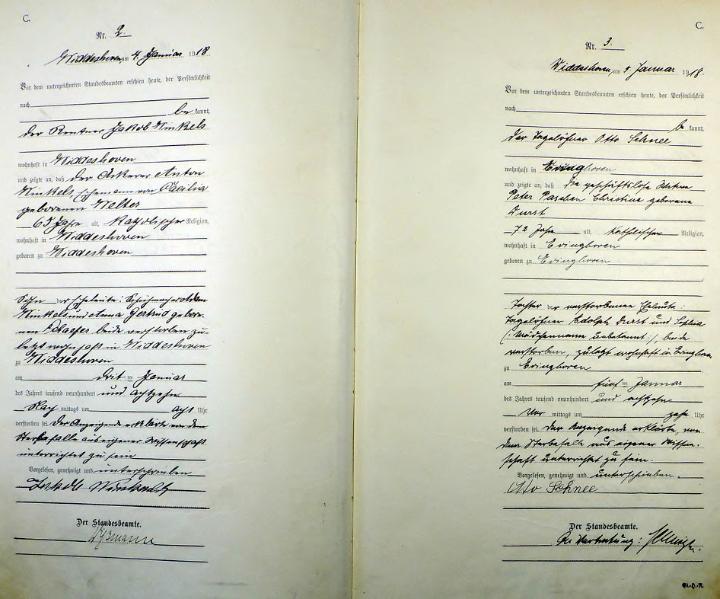 C.
Nr. 2.
Widdeshoven, am 4. Januar 1918.
Vor dem unterzeichneten Standesbeamten erschien heute, der Persönlichkeit
nach
be kannt,
der Rentner Jakob Winkels
wohnhaft in Widdeshoven
und zeigte an, daß der Ackerer Anton
Winkels, Ehemann von Cäcilia
geborenen Welter
63 Jahre alt, Katholischer Religion,
wohnhaft in Widdeshoven
geboren zu Widdeshoven
Sohn der Eheleute:
Winkels und Anna Gertrud gebore-
nen beide verstorben zu-
letzt wohnhaft in Widdeshoven
zu Widdeshoven
am drit= Januar
des Jahres tausend neunhundert und achtzehn
Nach mittags um acht Uhr
verstorben sei. Der Anzeigende erklärte von dem
Sterbefalle aus eigener Wissenschaft
unterrichtet zu sein
Vorgelesen, genehmigt und unterschrieben
Jakob Winkels
Der Standesbeamte.
C.
Nr. 3.
Widdeshoven, am Januar 1918.
Vor dem unterzeichneten Standesbeamten erschien heute, der Persönlichkeit
nach
be kannt,
der Tagelöhner Otto Schnee
wohnhaft in Evinghoven
und zeigte an, daß die geschäftslose Witwe
Peter Paschen Christina geborene
Durst
72 Jahre alt, katholischer Religion,
wohnhaft in Evinghoven
geboren zu Evinghoven
Tochter der verstorbenen Eheleute:
Tagelöhner Adolph Durst und
(Mädchenname unbekannt), beide
verstorben, zuletzt wohnhaft in Evinghoven
zu Evinghoven
am fünf= Januar
des Jahres tausend neunhundert und achtzehn
Vor mittags um zehn Uhr
verstorben sei. Der Anzeigende erklärte, von
dem Sterbefalle aus eigener Wissen-
schaft unterrichtet zu sein.
Vorgelesen, genehmigt und unterschrieben.
Otto Schnee
Der Standesbeamte.
In Vertretung: